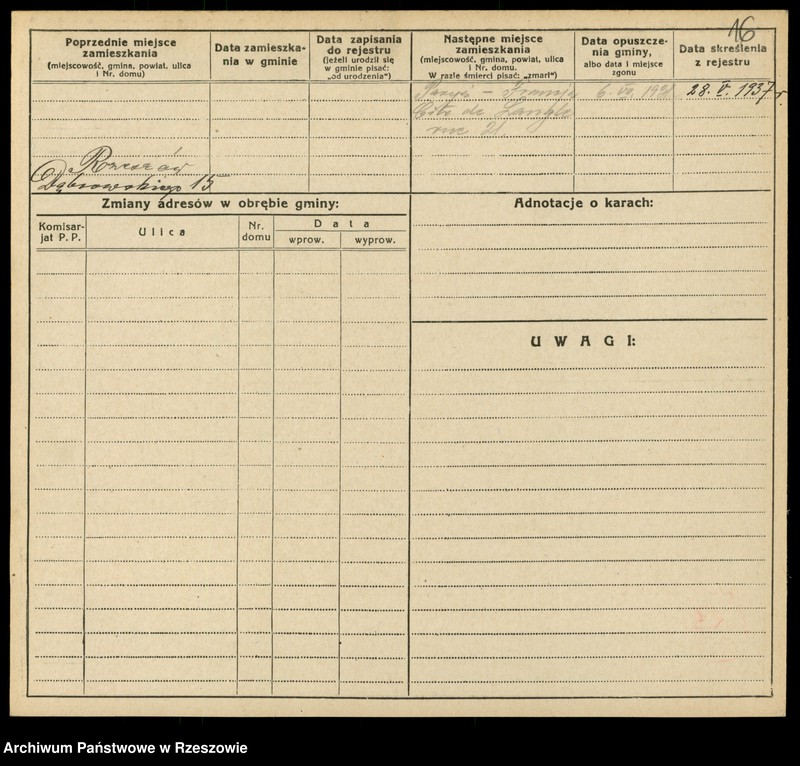 16
Poprzednie miejsce
zamieszkania
(miejscowość, gmina, powiat, ulica
i Nr. domu)
Data zamieszka-
nia w gminie
Data zapisania
do rejestru
(jeżeli urodził się
w gminie pisać:
„od urodzenia“)
Następne miejsce
zamieszkania
(miejscowość, gmina, powiat, ulica
i Nr. domu.
W razie śmierci pisać: „zmarł“)
Data opuszcze-
nia gminy,
albo data i miejsce
zgonu
Data skreślenia
z rejestru
Rzeszów
Dąbrowskiego 15
Paryż – Francja
Cité de
rue 21.
6. VII. 193
28. V. 1937 r.
Zmiany adresów w obrębie gminy:
Komisar-
jat P. P.
Ulica
Nr.
domu
Data
wprow.
wyprow.
Adnotacje o karach:
UWAGI:
Archiwum Państwowe w Rzeszowie